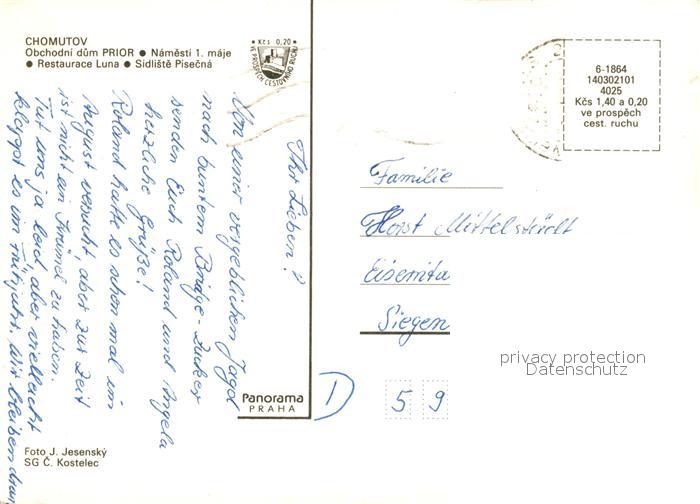 CHOMUTOV
Obchodní dům PRIOR ● Náměstí 1. máje
● Restaurace Luna ● Sídliště Písečná
• Kčs 0,20 •
VE PROSPĚCH CESTOVNÍHO RUCHU
Ihr Lieben!
Von einer vergeblichen Jagd
nach buntem Bridge-Zucker
senden Euch Roland und Angela
herzliche Grüße!
Roland hatte es schon mal im
August versucht, aber zur Zeit
ist nicht ein Krümel zu haben.
Tut uns ja leid, aber vielleicht
klappt es im Frühjahr. Wir bleiben dran
Foto J. Jesenský
SG Č. Kostelec
Panorama
PRAHA
6-1864
140302101
4025
Kčs 1,40 a 0,20
ve prospěch
cest. ruchu
Familie
Horst Mittelstädt
Siegen
D
59
privacy protection
Datenschutz